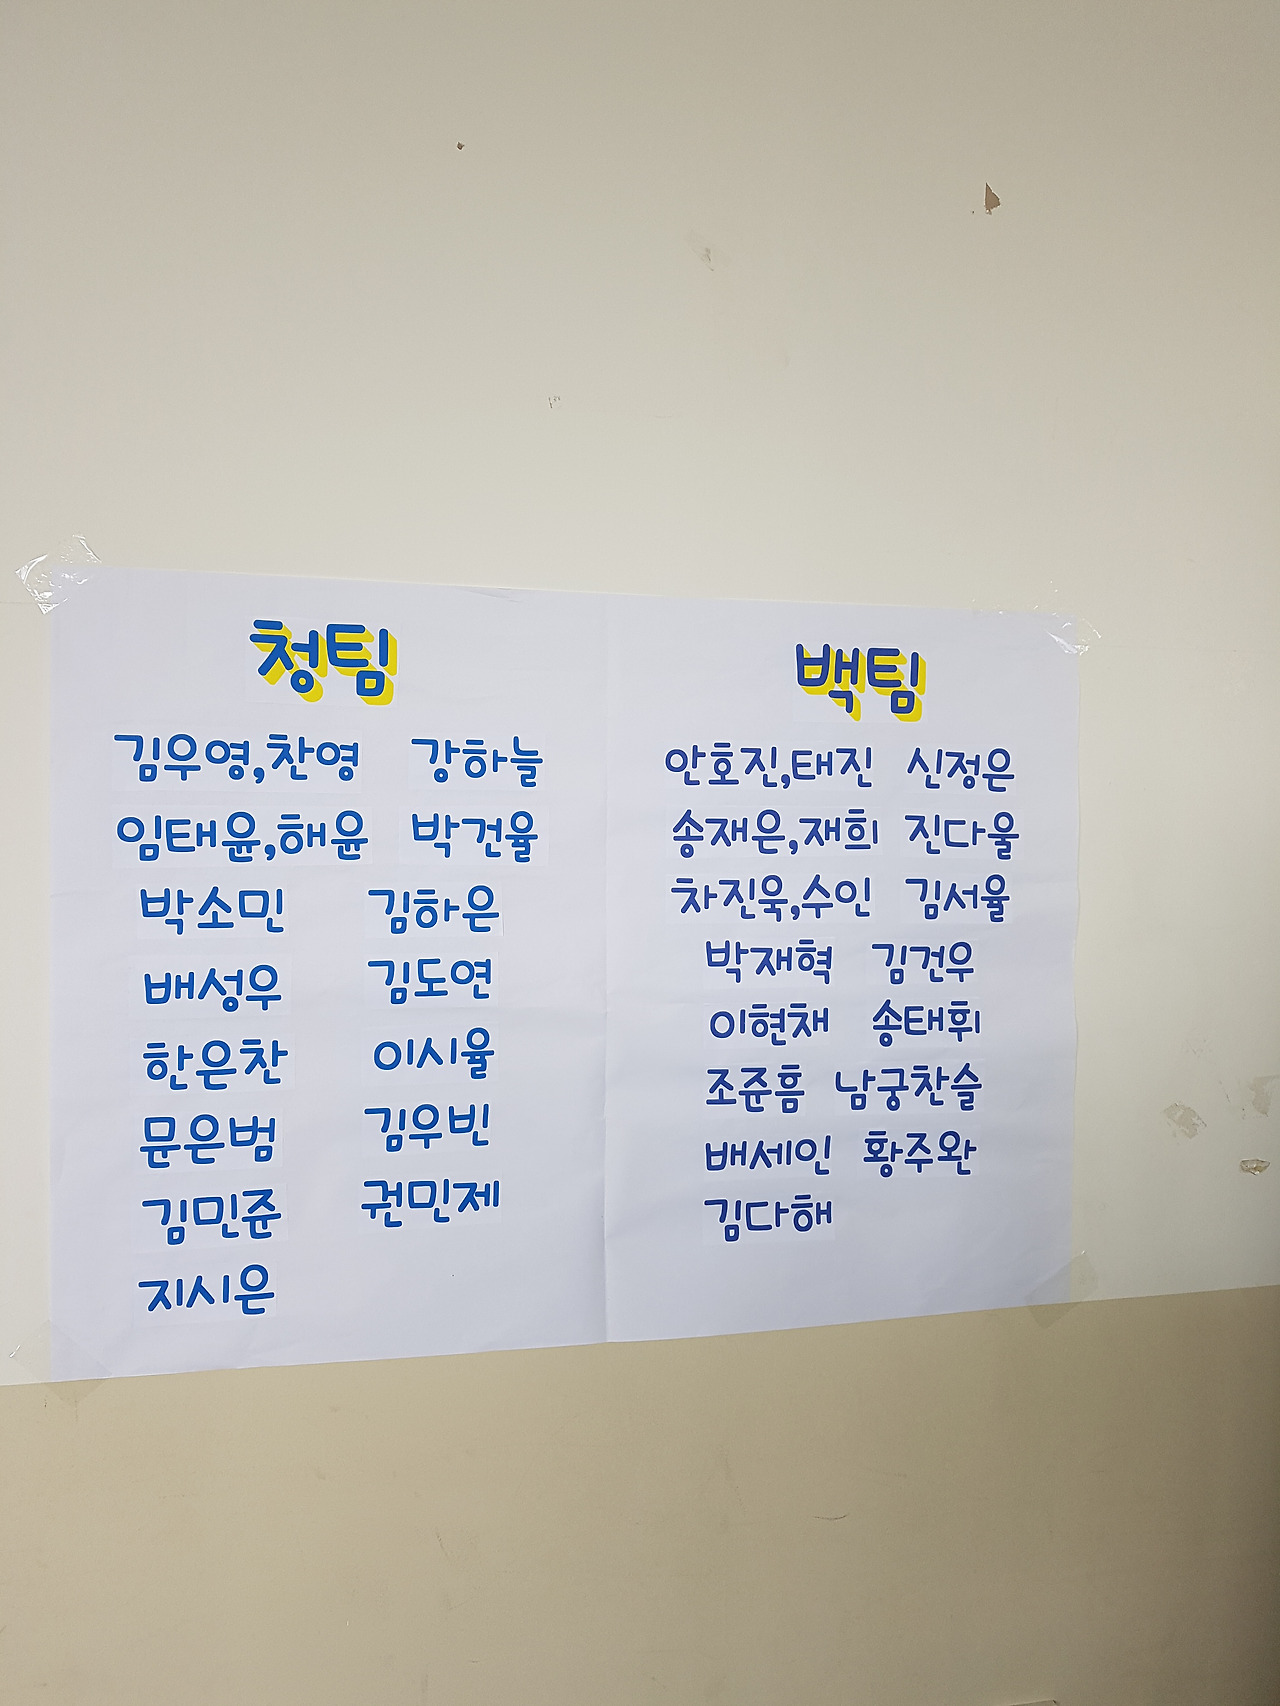 청팀
김우영,찬영 강하늘
임태윤,해윤 박건율
박소민 김하은
배성우 김도연
한은찬 이시율
문은범 김우빈
김민준 권민제
지시은
백팀
안호진,태진 신정은
송재은,재희 진다울
차진욱,수인 김서율
박재혁 김건우
이현채 송태휘
조준흠 남궁찬슬
배세인 황주완
김다해